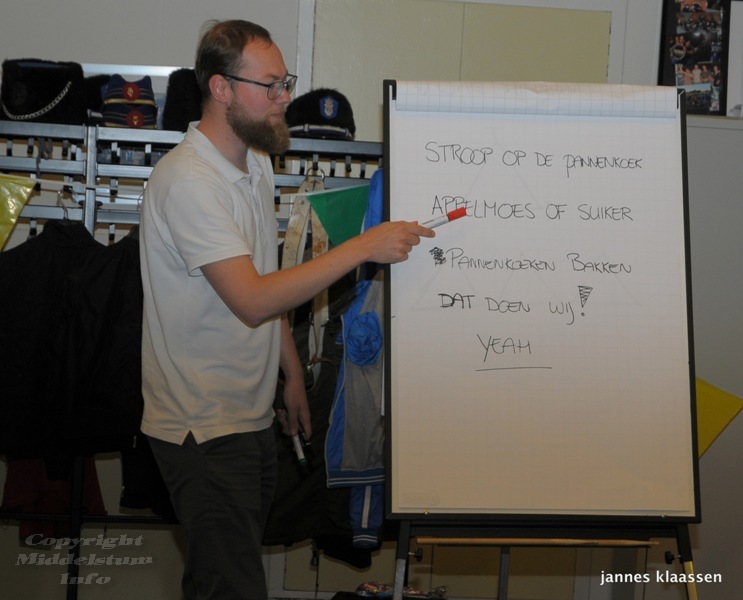 STROOP OP DE PANNENKOEK
APPELMOES OF SUIKER
PANNENKOEKEN BAKKEN
DAT DOEN WIJ!
YEAH
Copyright
Middelstum
Info
jannes klaassen